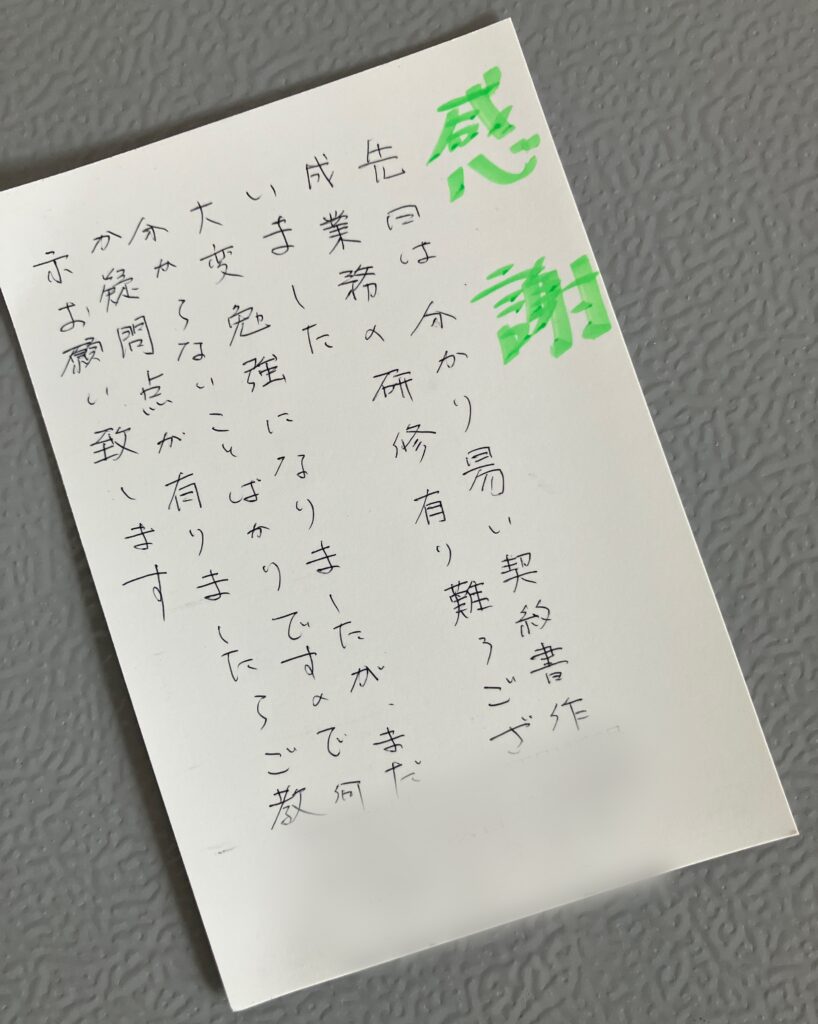 感謝
先日は 分かり易い契約書作
成業務の研修有り難うござ
いました
大変勉強になりましたが、まだ
分からないことばかりですので何
か疑問点が有りましたらご教
示お願い致します